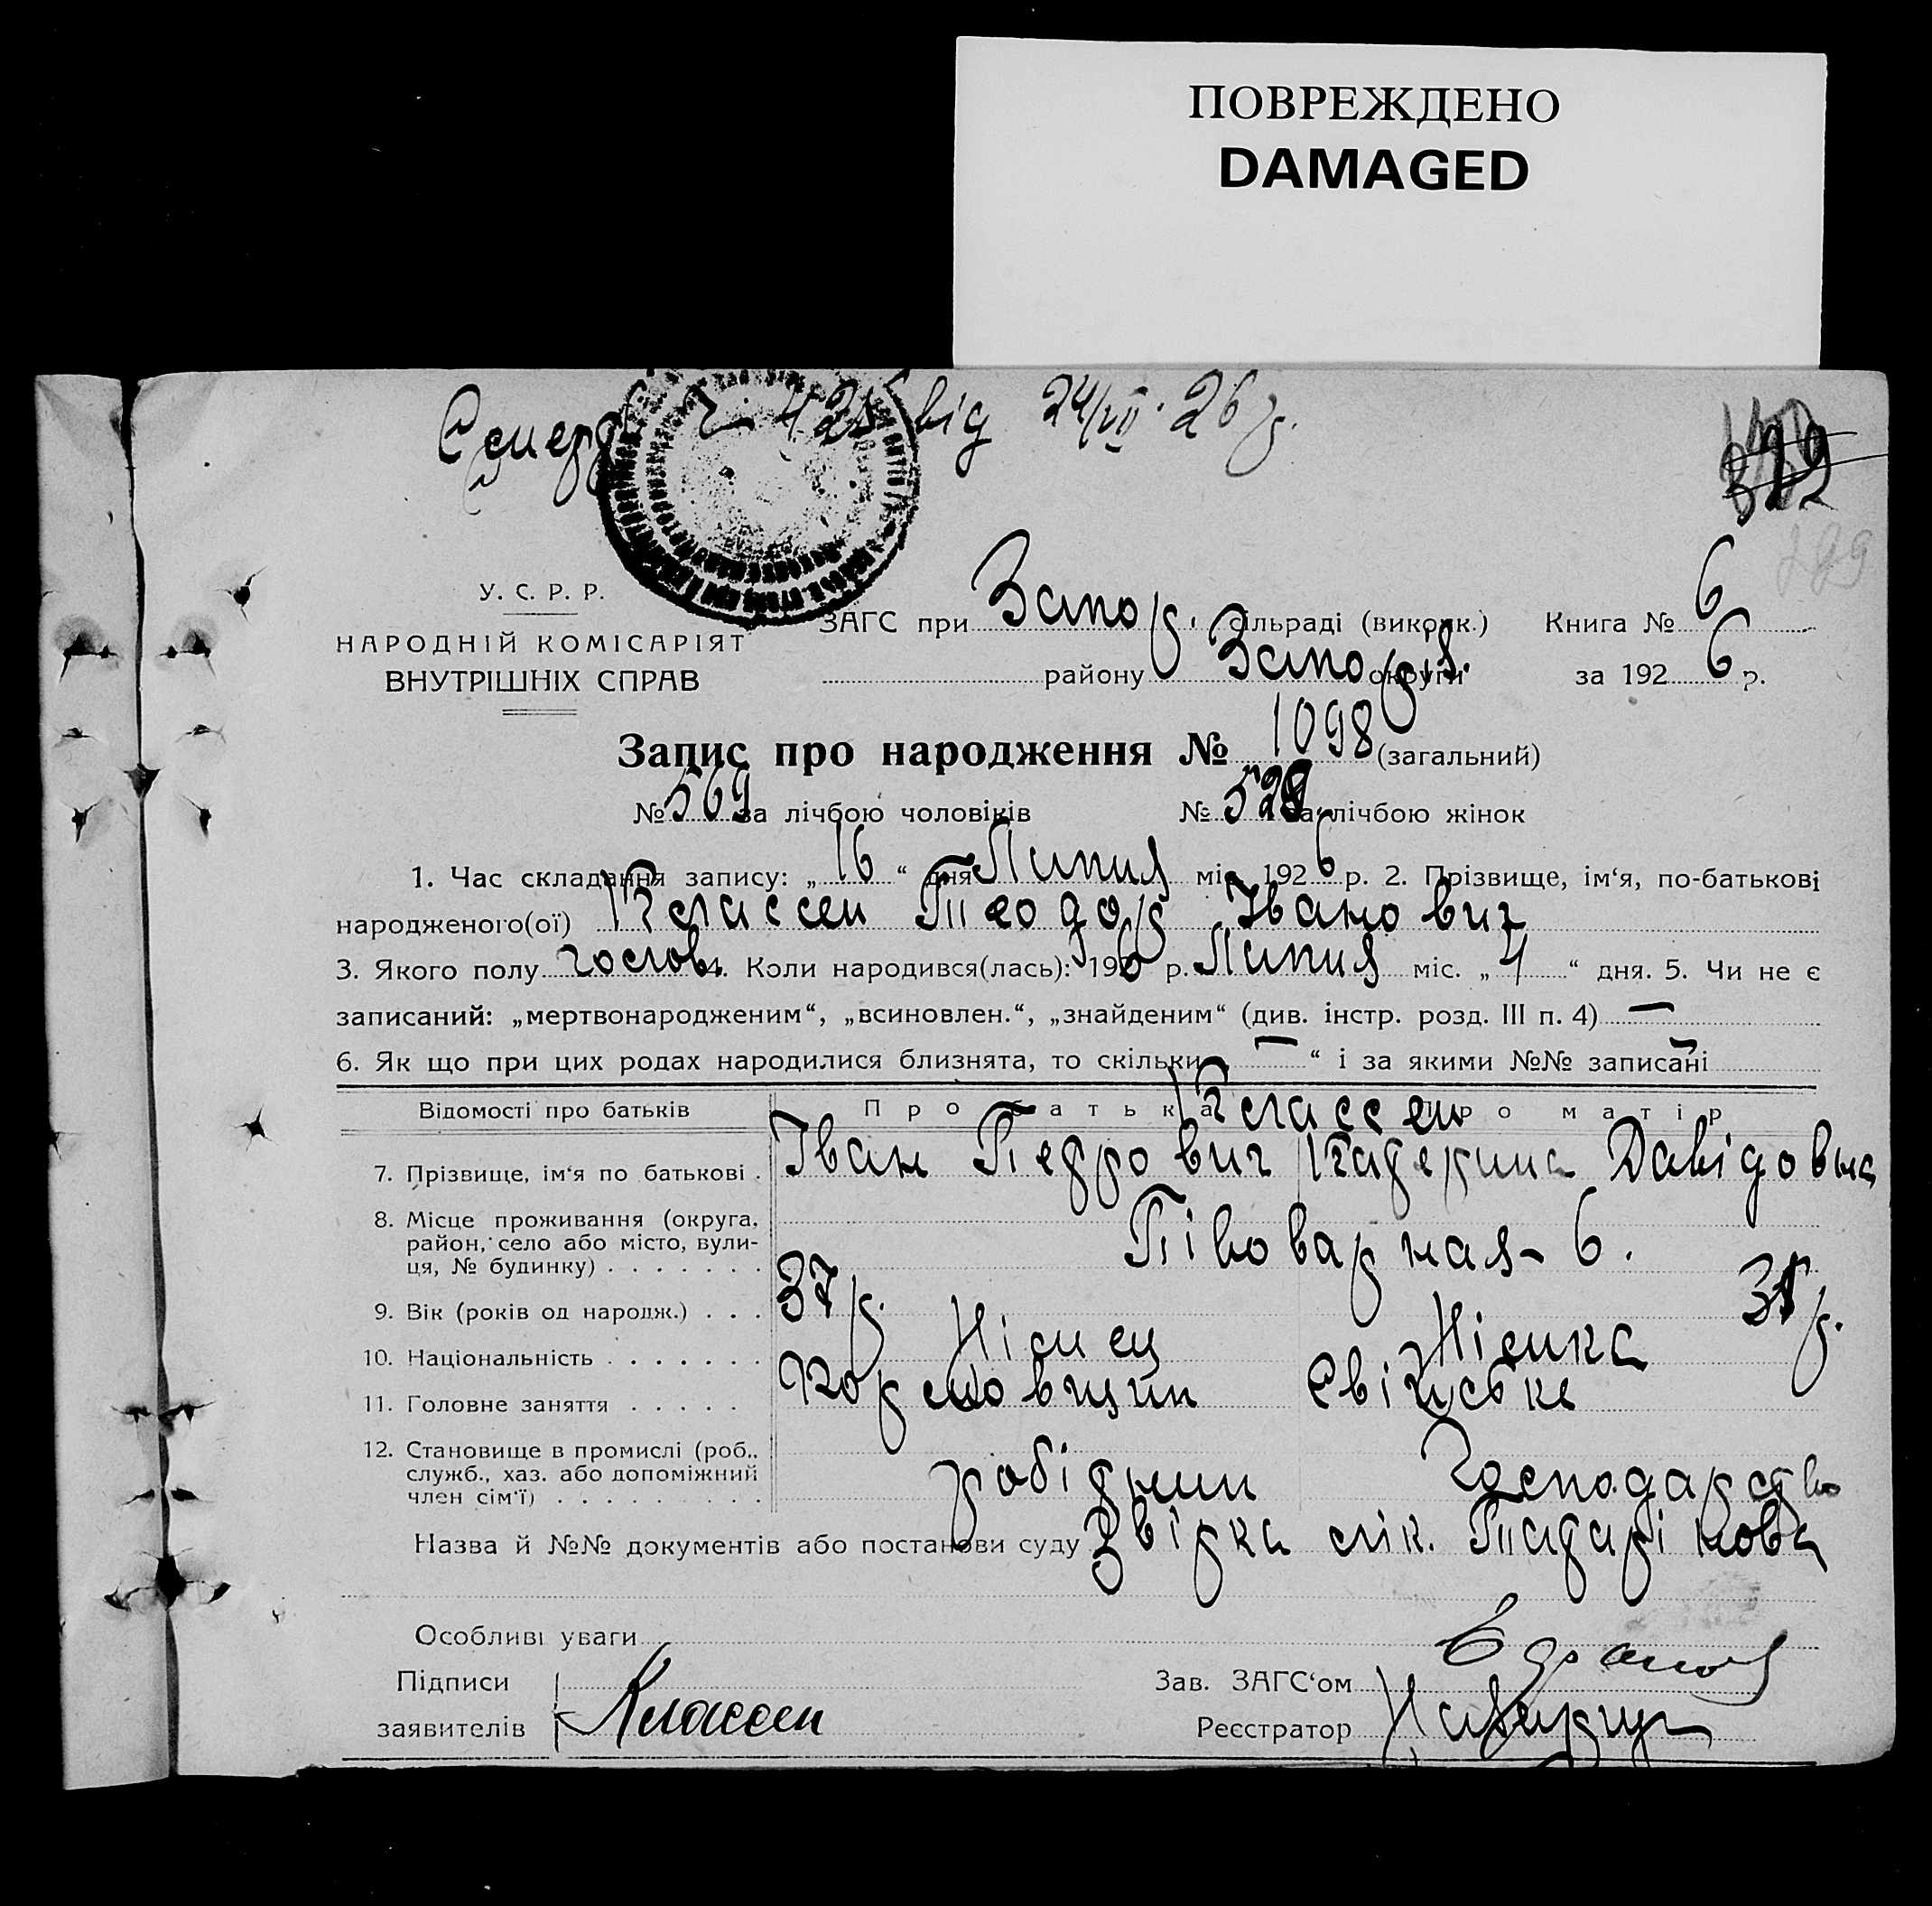 ПОВРЕЖДЕНО
DAMAGED
від 24/VII. 26 р.
299
У. С. Р. Р.
НАРОДНІЙ КОМІСАРІЯТ
ВНУТРІШНІХ СПРАВ
ЗАГС при Запор. сільраді (викоnк.) Книга № 6
району Запор. округи за 1926 р.
Запис про народження № 1098 (загальний)
№ 569 за лічбою чоловіків № 529 за лічбою жінок
1. Час складання запису: „16“ дня Липня міс. 1926 р. 2. Прізвище, ім‘я, по-батькові
народженого(ої) Классен Теодор Іванович
3. Якого полу чолов. 4. Коли народився(лась): 1926 р. Липня міс. „4“ дня. 5. Чи не є
записаний: „мертвонародженим“, „всиновлен.“, „знайденим“ (див. інстр. розд. III п. 4) —
6. Як що при цих родах народилися близнята, то скільки „—“ і за якими №№ записані —
Відомості про батьків Про батька Про матір
Классен
7. Прізвище, ім‘я по батькові . Іван Петрович Катерина Давідовна
8. Місце проживання (округа, район, село або місто, вулиця, № будинку) . . . . . . . Півоварная - 6.
9. Вік (років од народж.) . . . 37 р. р.
10. Національність . . . . . . . Німец Німка
11. Головне заняття . . . . . Кормовщик
12. Становище в промислі (роб., служб., хаз. або допоміжний член сім‘ї) . . . . . . . . . робітник Господарство
Назва й №№ документів або постанови суду Звірка лік.
Особливі уваги
Підписи
заявителів Классен
Зав. ЗАГС‘ом
Реєстратор